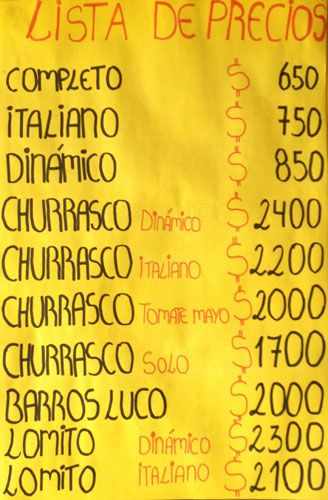 LISTA DE PRECIOS
COMPLETO $ 650
ITALIANO $ 750
DINÁMICO $ 850
CHURRASCO DINÁMICO $ 2400
CHURRASCO ITALIANO $ 2200
CHURRASCO TOMATE MAYO $ 2000
CHURRASCO SOLO $ 1700
BARROS LUCO $ 2000
LOMITO DINÁMICO $ 2300
LOMITO ITALIANO $ 2100